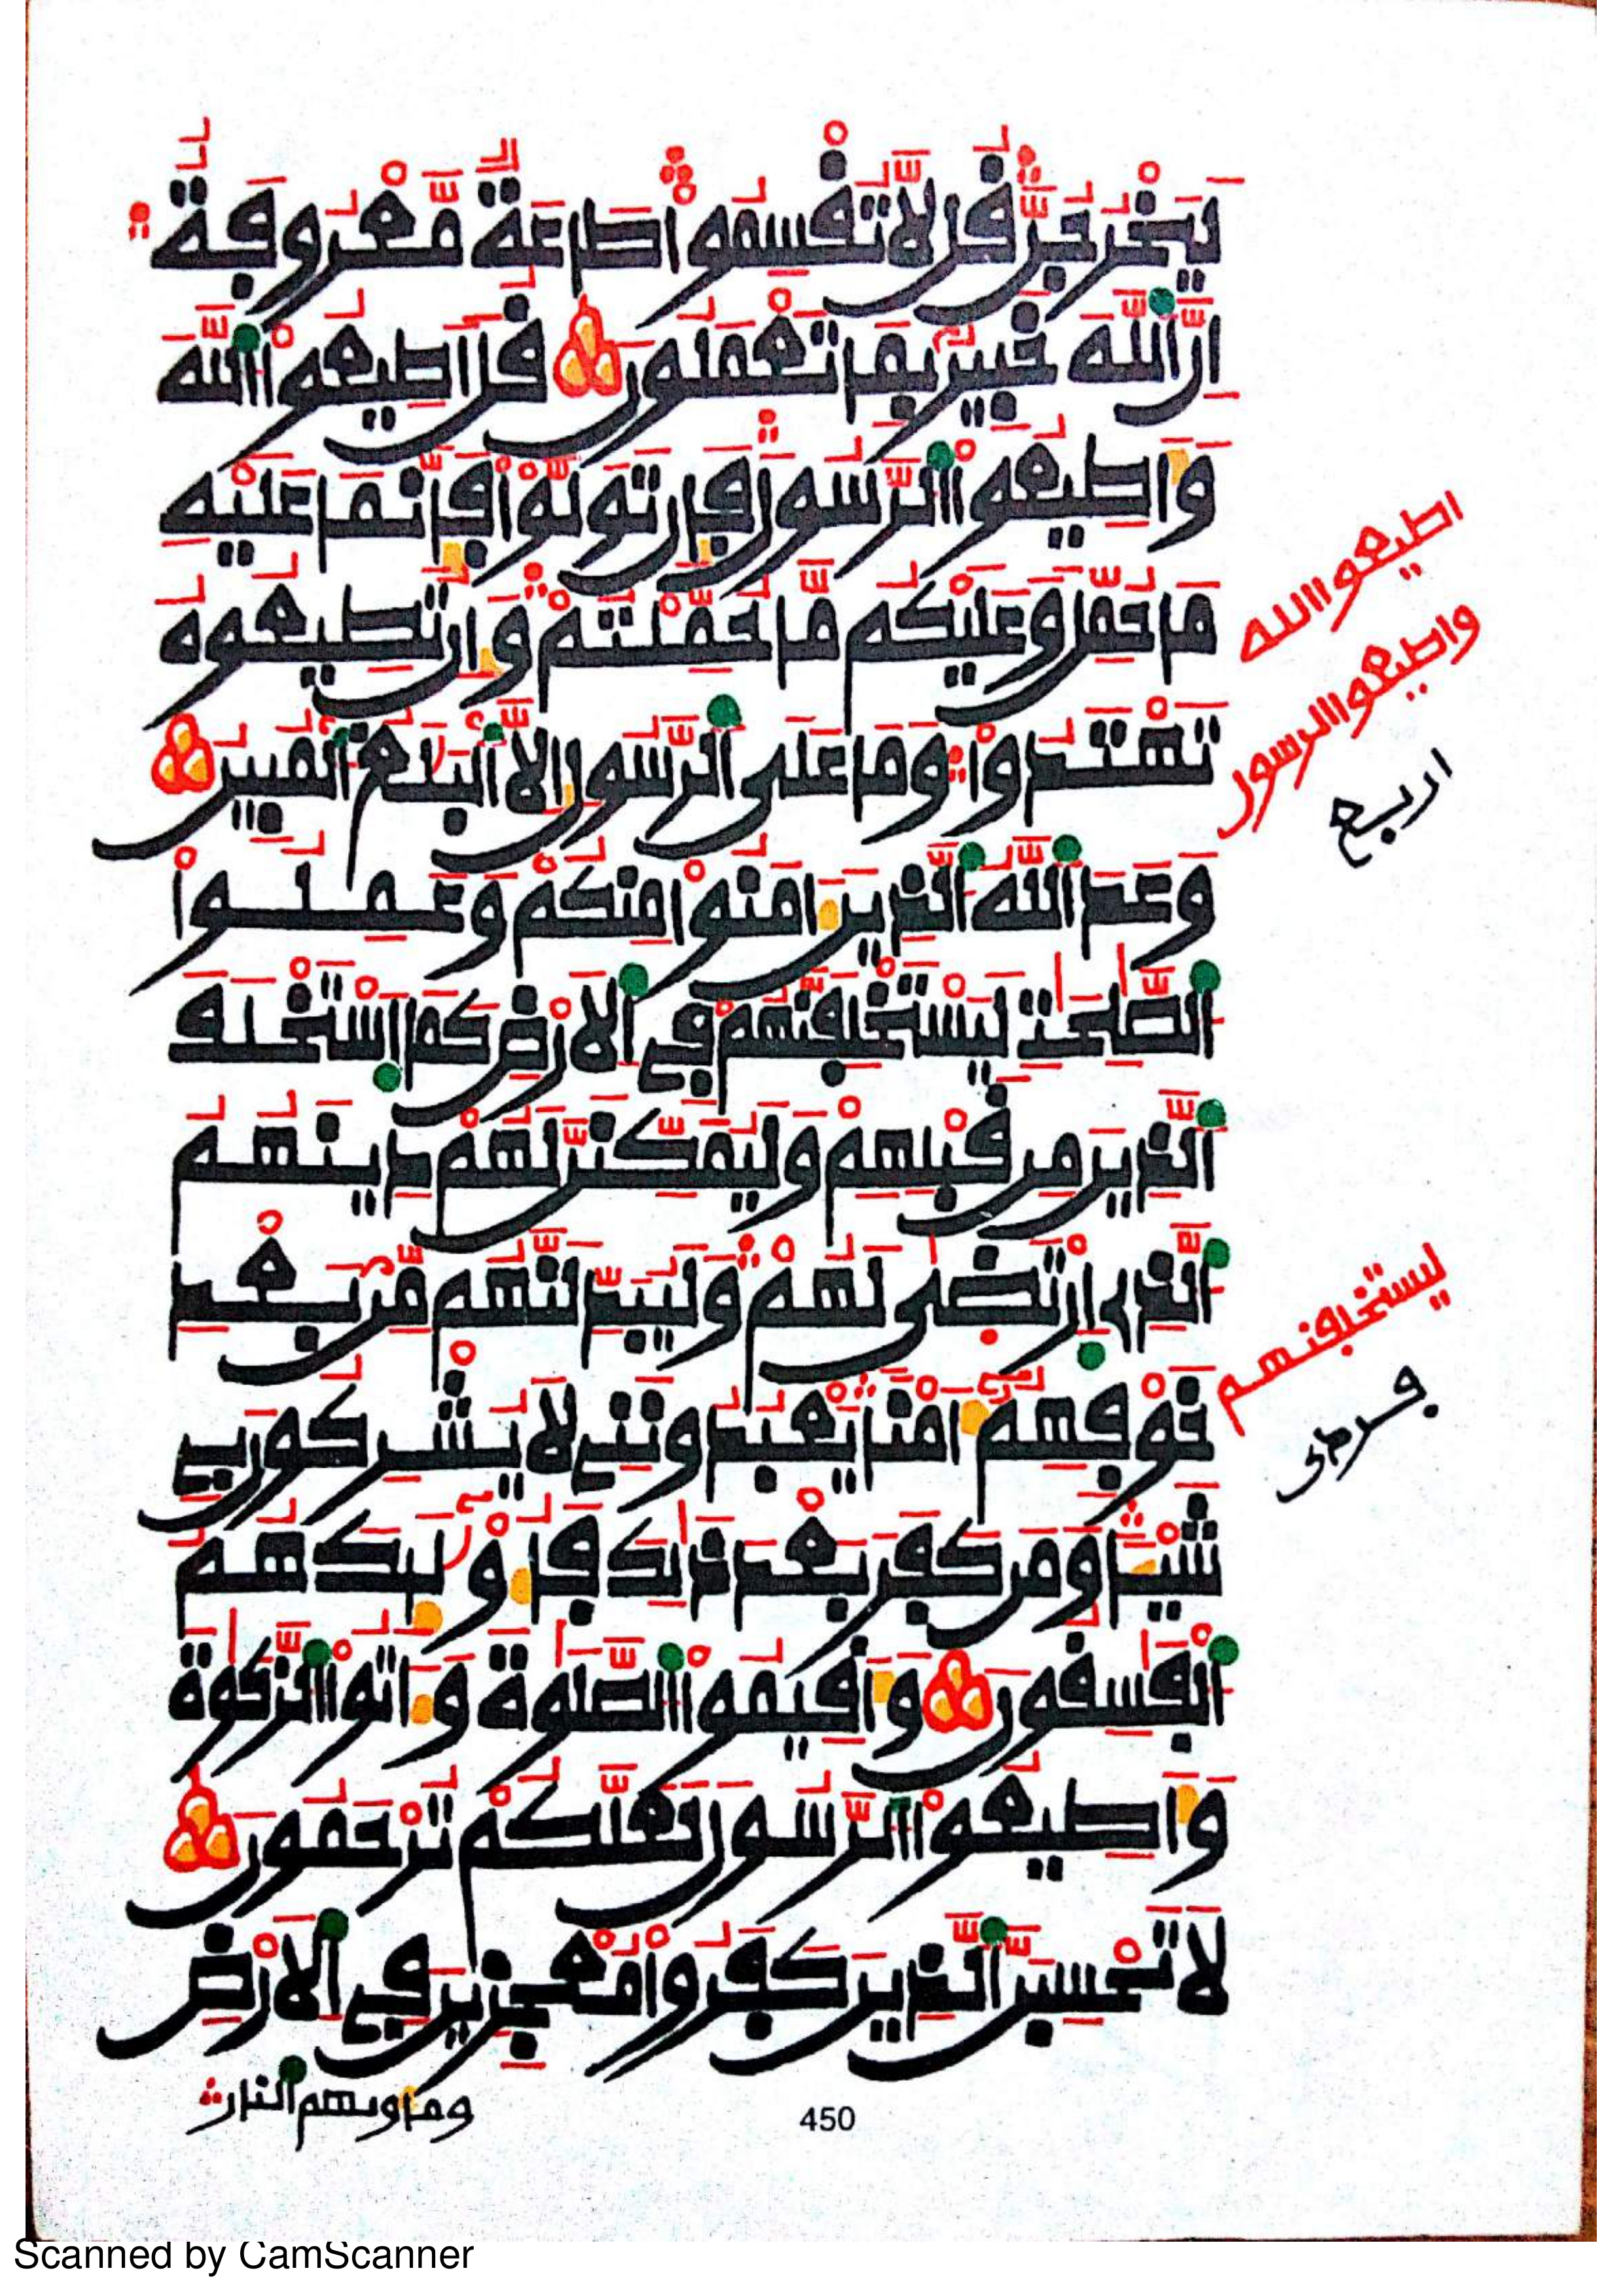 يَخْرُجُنَّ قُل لَّا تُقْسِمُواْ طَاعَةٌ مَّعْرُوفَةٌ
اِنَّ اَللَّهَ خَبِيرٌ بِمَا تَعْمَلُونَ قُلَ اَطِيعُواْ اُللَّهَ
وَأَطِيعُواْ اُلرَّسُولَ فَإِن تَوَلَّوْاْ فَإِنَّمَا عَلَيْهِ
مَا حُمِّلَ وَعَلَيْكُم مَّا حُمِّلْتُمْ وَإِن تُطِيعُوهُ
تَهْتَدُواْ وَمَا عَلَى اَلرَّسُولِ إِلَّا اَلْبَلَٰغُ اُلْمُبِينُ
اطيعوا الله
واطيعوا الرسول
اربع
وَعَدَ اَللَّهُ اُلذِينَ ءَامَنُواْ مِنكُمْ وَعَمِلُواْ
اُلصَّٰلِحَٰتِ لَيَسْتَخْلِفَنَّهُمْ فِي اِلَارْضِ كَمَا اَسْتَخْلَفَ
اَلذِينَ مِن قَبْلِهِمْ وَلَيُمَكِّنَنَّ لَهُمْ دِينَهُمُ
اُلذِي اِرْتَضَىٰ لَهُمْ وَلَيُبَدِّلَنَّهُم مِّنۢ بَعْدِ
ليستخلفنهم
خَوْفِهِمُۥ أَمْناً يَعْبُدُونَنِي لَا يُشْرِكُونَ بِي
شَيْـٔاً وَمَن كَفَرَ بَعْدَ ذَٰلِكَ فَأُوْلَٰٓئِكَ هُمُ
اُلْفَٰسِقُونَ وَأَقِيمُواْ اُلصَّلَوٰةَ وَءَاتُواْ اُلزَّكَوٰةَ
وَأَطِيعُواْ اُلرَّسُولَ لَعَلَّكُمْ تُرْحَمُونَ
لَا تَحْسِبَنَّ اَلذِينَ كَفَرُواْ مُعْجِزِينَ فِي اِلَارْضِ
ومأويهم النار
450
Scanned by CamScanner